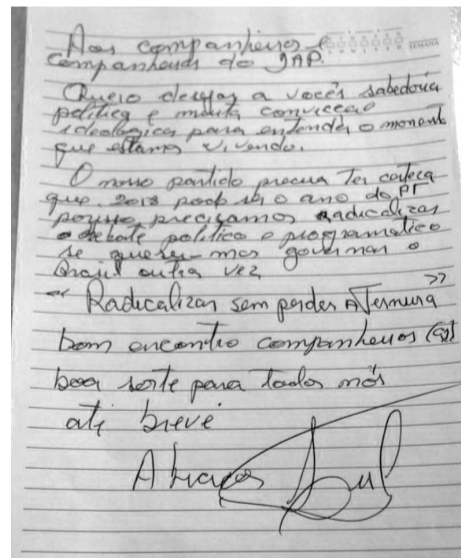 Aos companheiros e
SEMANA
companheiras do JAP.
Quero desejar a vocês sabedoria
politica e muita convicção
ideologica para entender o momento
que estamos vivendo.
O nosso partido precisa Ter certeza
que 2018 pode ser o ano do PT
por isso precisamos Radicalizar
o debate politico e programatico
se queremos governar o
Brasil outra vez
"Radicalizar sem perder A Ternura"
bom encontro companheiros (as)
boa sorte para todos nós
até breve
Abraços Lul